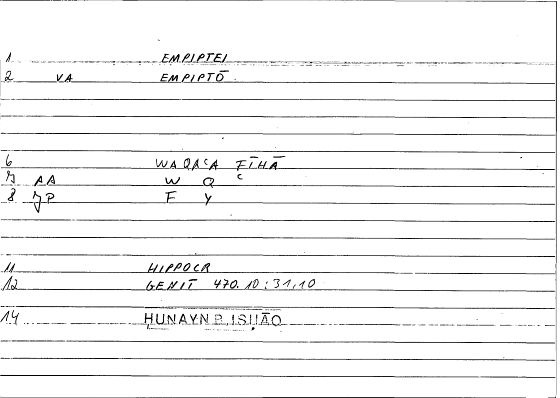 1 EMPIPTEI
2 VA EMPIPTŌ
6 WAQAꜤA FĪHĀ
7 AA W Q Ꜥ
8 JP F Y
11 HIPPOCR
12 GENIT 470.10:31,10
14 ḤUNAYN B. ISḤĀQ